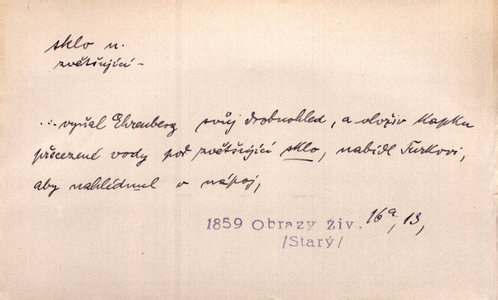 sklo n.
zvětšující –
... vyňal Ehrenberg svůj drobnohled, a vloživ kapku
přecezené vody pod zvětšující sklo, nabídl Turkovi,
aby nahlédnul v nápoj,
1859 Obrazy živ. 16a, 13,
/Starý/